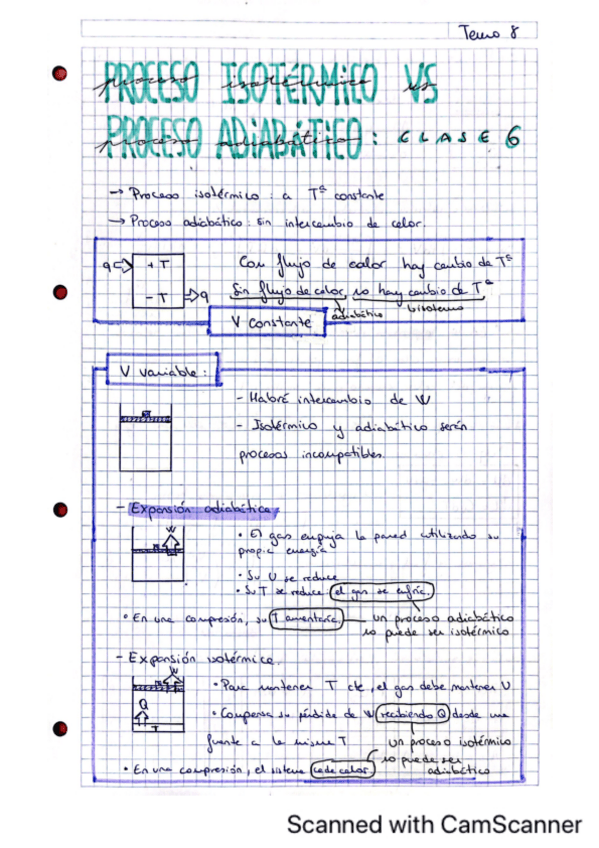 Tema 8
PROCESO ISOTÉRMICO VS
PROCESO ADIABÁTICO: CLASE 6
→ Proceso isotérmico: a Tª constante
→ Proceso adiabático: sin intercambio de calor.
q ⇒ + T
- T ⇒ q
Con flujo de calor hay cambio de Tª
Sin flujo de calor, no hay cambio de Tª
adiabático
V constante
V variable:
- Habrá intercambio de W
- Isotérmico y adiabático serán
procesos incompatibles.
- Expansión adiabática
W
• El gas empuja la pared utilizando su
propia energía
• Su U se reduce
• Su T se reduce: el gas se enfría.
• En una compresión, su T aumentaría. un proceso adiabático
no puede ser isotérmico
- Expansión isotérmica.
W
Q
T
• Para mantener T cte, el gas debe mantener U
• Compensa su pérdida de W recibiendo Q desde una
fuente a la misma T
un proceso isotérmico
no puede ser
adiabático
• En una compresión, el sistema cede calor
Scanned with CamScanner